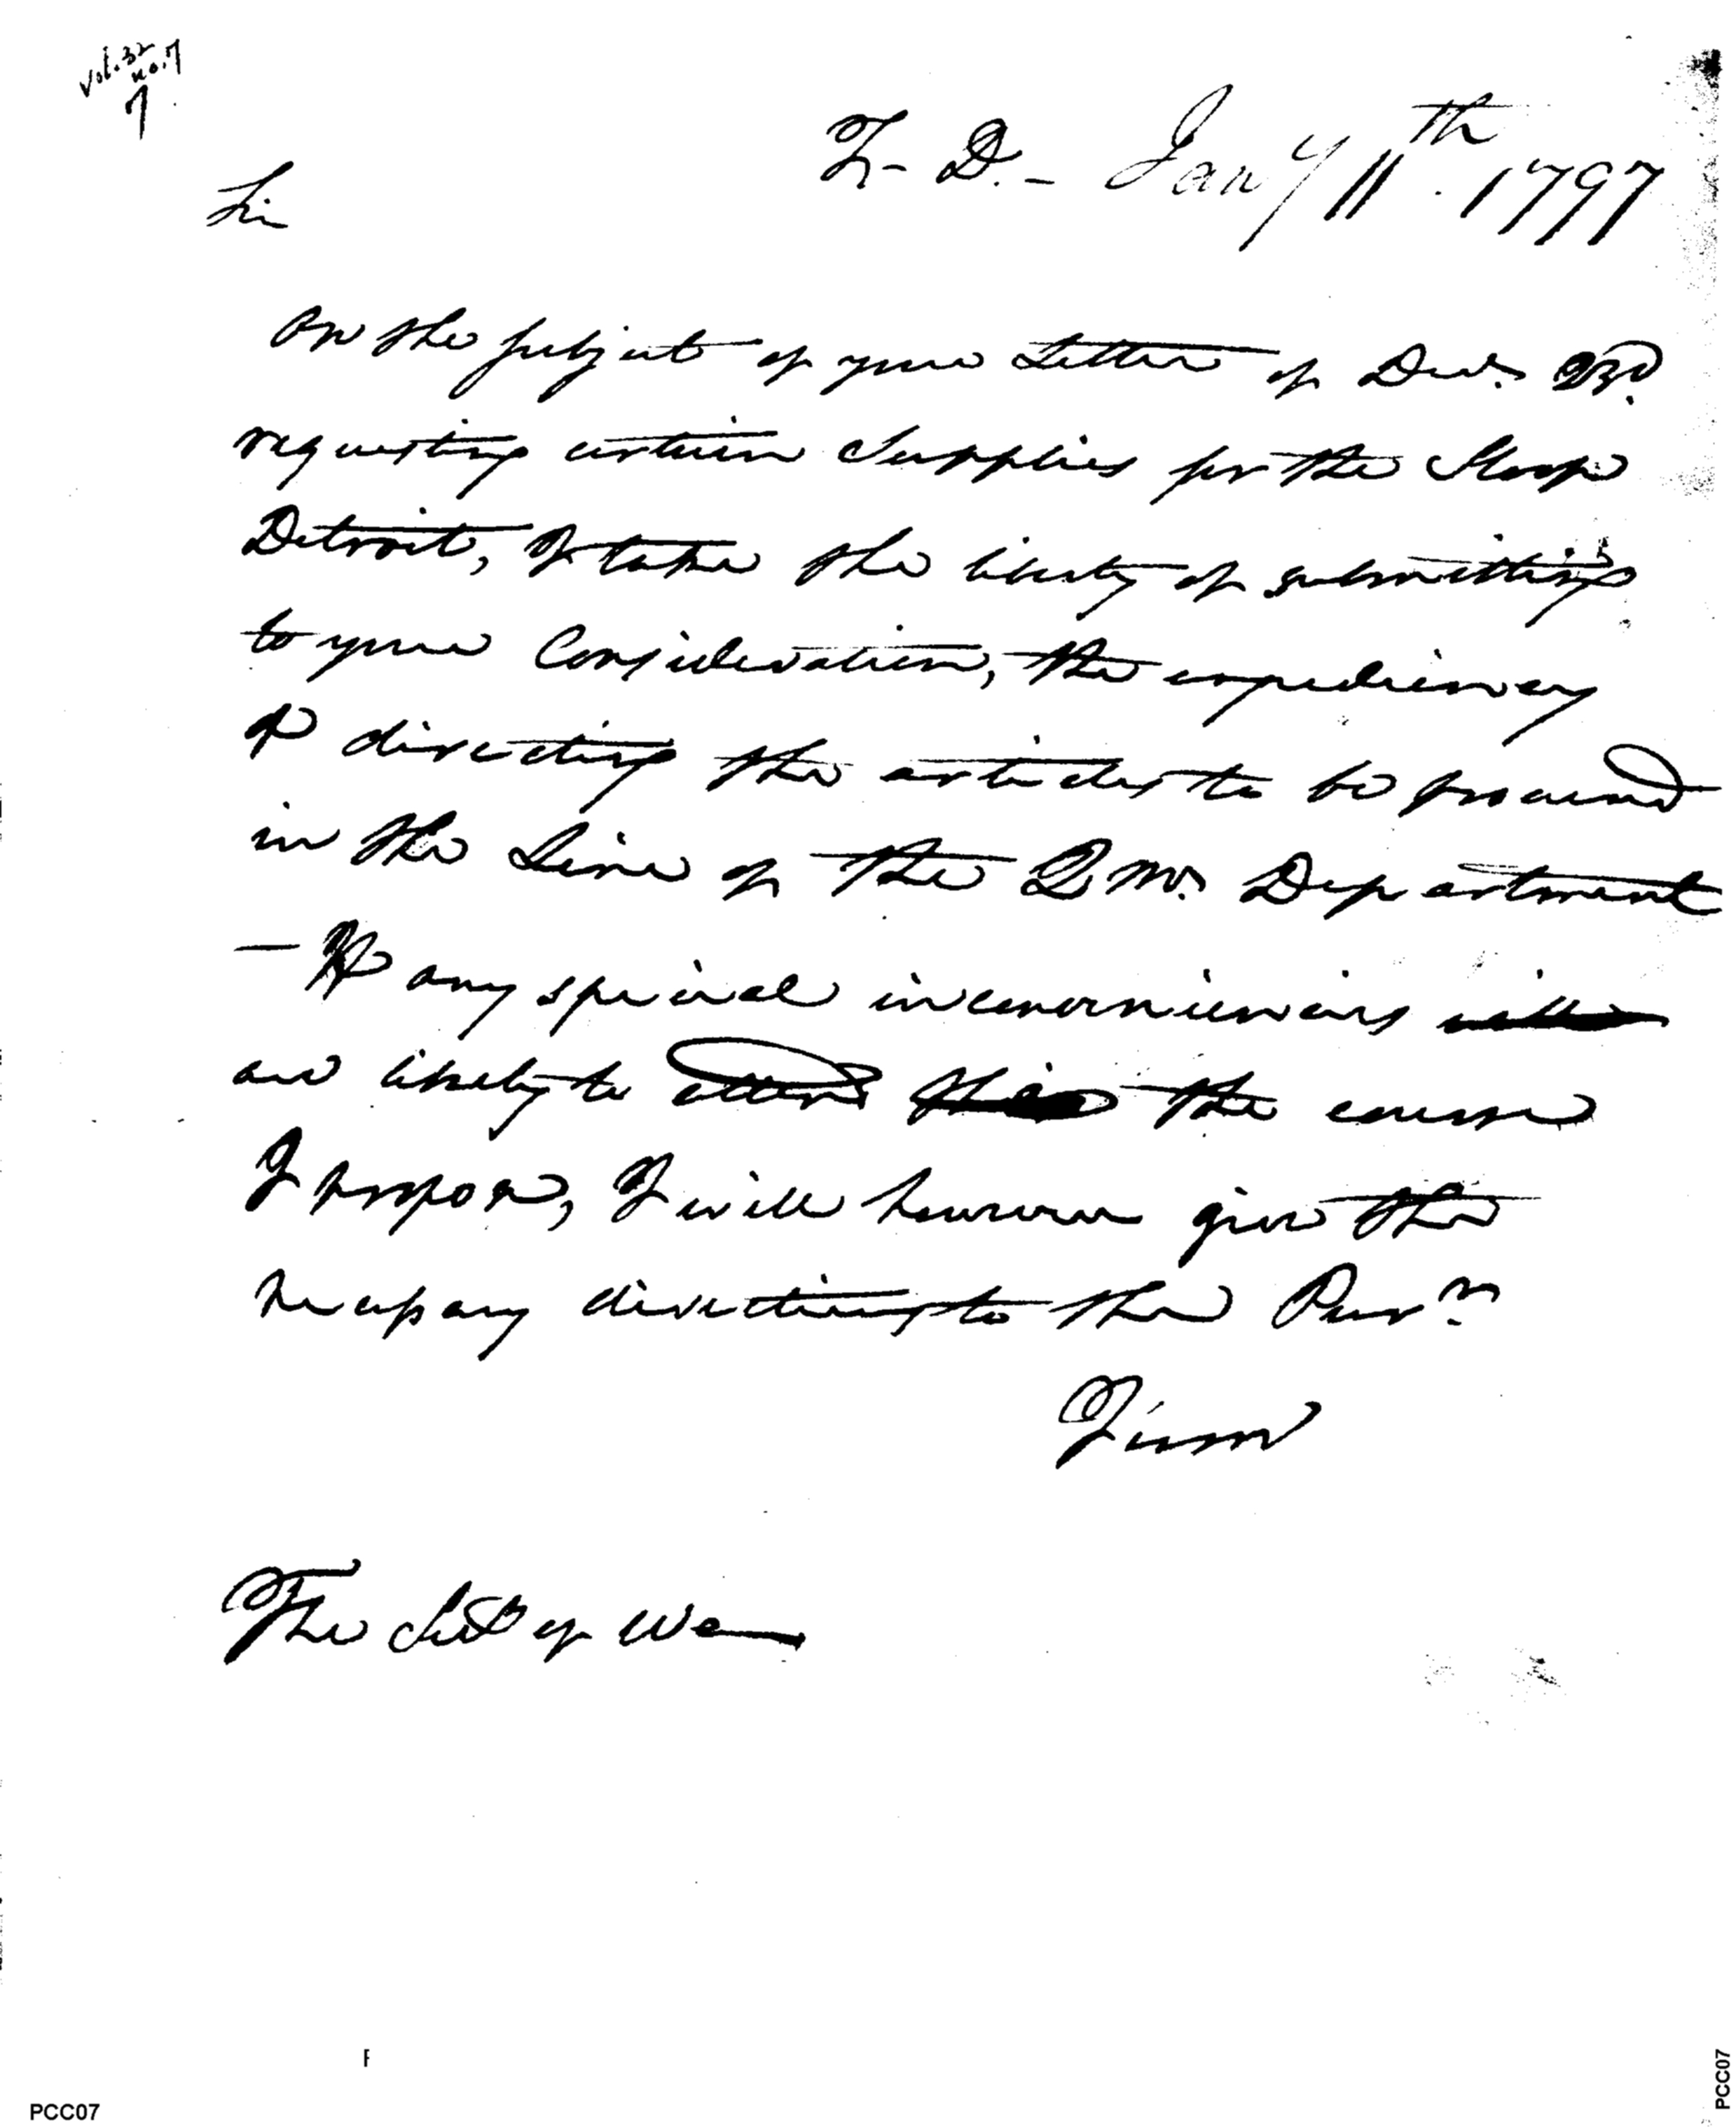 vol. 32
no. 7
7
T. D. - Jany 11th. 1797
Sir
On the subject of your Letter of Decr. 23d.
requesting certain Supplies for the Sloop
Detroit, I take the liberty of submitting
to your Consideration, the expediency
of directing the articles to be procured
in the Line of the Q M. Department
- If any special inconveniencies
are likely to attend the course
I propose, I will however give the
necessary directions to the Purr.
I am
The Secy of War
F
PCC07
PCC07